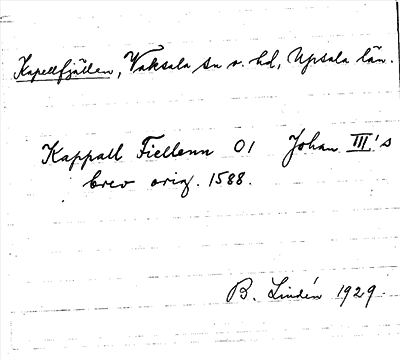 Kapellfjällen, Vaksala sn o. hd, Upsala län.
Kappall Fiellenn 01 Johan III's
brev orig. 1588.
B. Lindén 1929